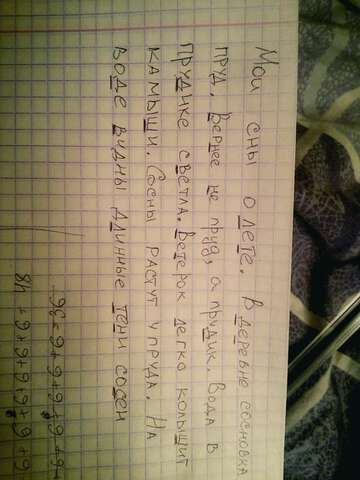 Мои сны о дете. В деревне сосновка
пруд. Вернее не пруд, а прудик. Вода в
прудике светла. Ветерок легко колышит
камыши. Сосны растут у пруда. На
воде видны длинные тени сосен
36=9+9+9+9+
48 +9+9+9+9+9